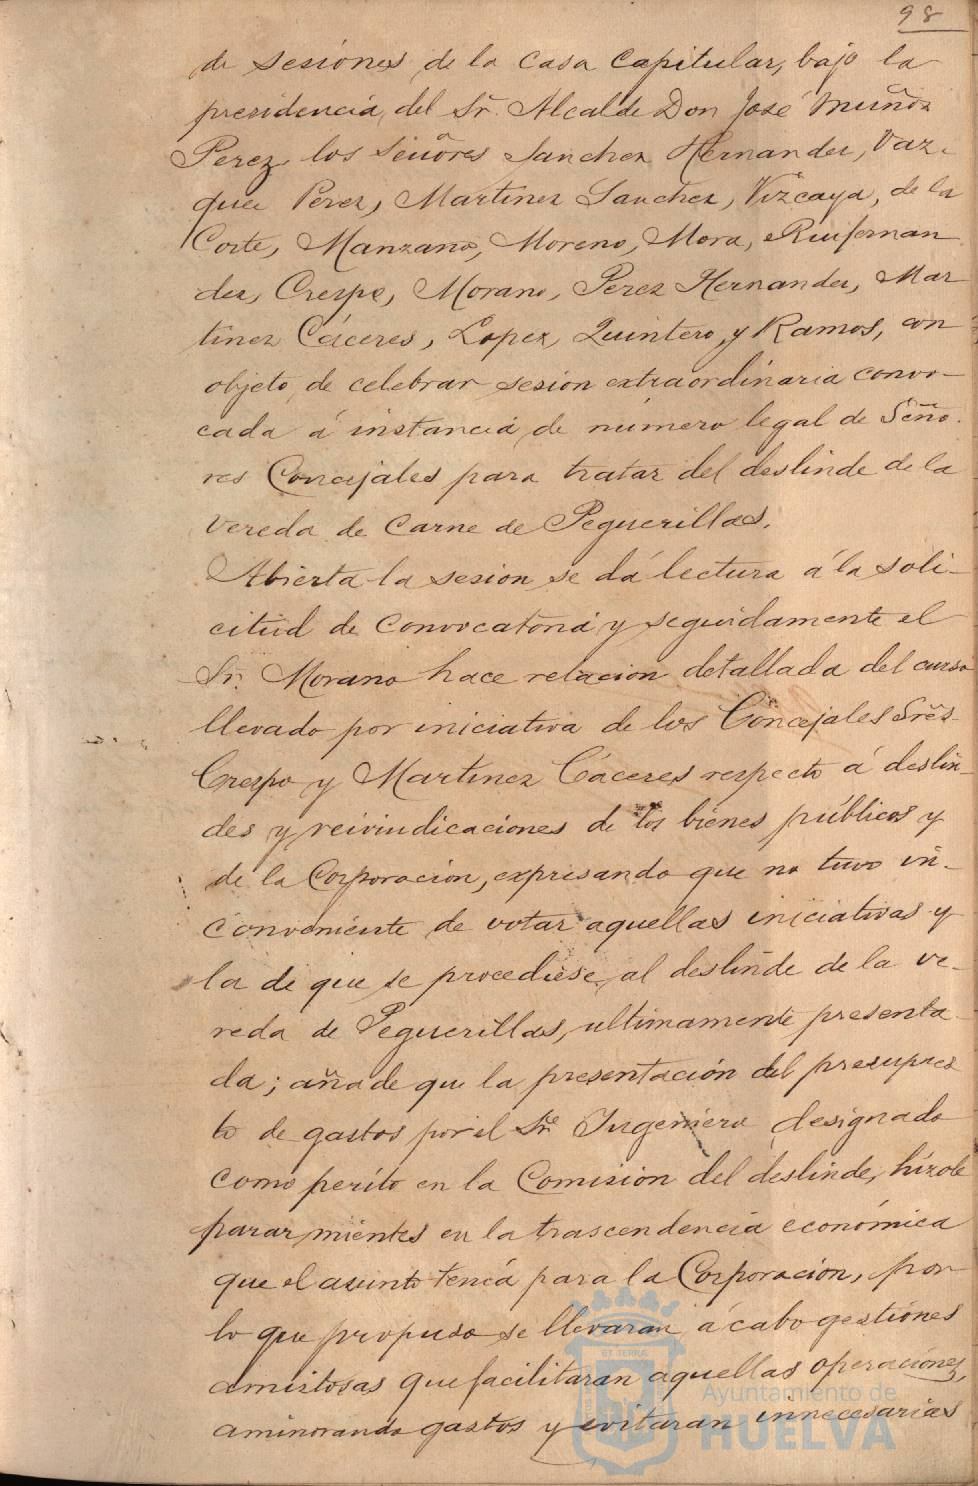 98
de sesiónes de la casa capitular, bajo la
presidencia del Sr. Alcalde Don José Muñoz
Perez los Señores Sanchez Hernandez, Vaz-
quez Perez, Martinez Sanchez, Vizcaya, de la
Corte, Manzano, Moreno, Mora, Ruifernan
dez, Crespo, Morano, Perez Hernandez, Mar
tinez Cáceres, Lopez, Quintero, y Ramos, con
objeto de celebrar sesion extraordinaria convo-
cada á instancia de número legal de Seño-
res Concejales para tratar del deslinde de la
vereda de carne de Peguerillas.
Abierta la sesion se dá lectura á la soli-
citud de convocatoria y seguidamente el
Sr. Morano hace relacion detallada del curso
llevado por iniciativa de los Concejales Sres.
Crespo y Martinez Cáceres respecto á deslin-
des y reivindicaciones de los bienes públicos y
de la Corporacion, expresando que no tuvo in-
conveniente de votar aquellas iniciativas y
la de que se procediese al deslinde de la ve-
reda de Peguerillas, ultimamente presenta-
da; añade que la presentación del presupues
to de gastos por el Sr. Ingeniero designado
como perito en la Comision del deslinde, hízole
parar mientes en la trascendencia económica
que el asunto tenía para la Corporacion, por
lo que propuso se llevaran á cabo gestiónes
amistosas que facilitaran aquellas operaciónes,
aminorando gastos y evitaran innecesarias
ET TERRA
Ayuntamiento de
HUELVA